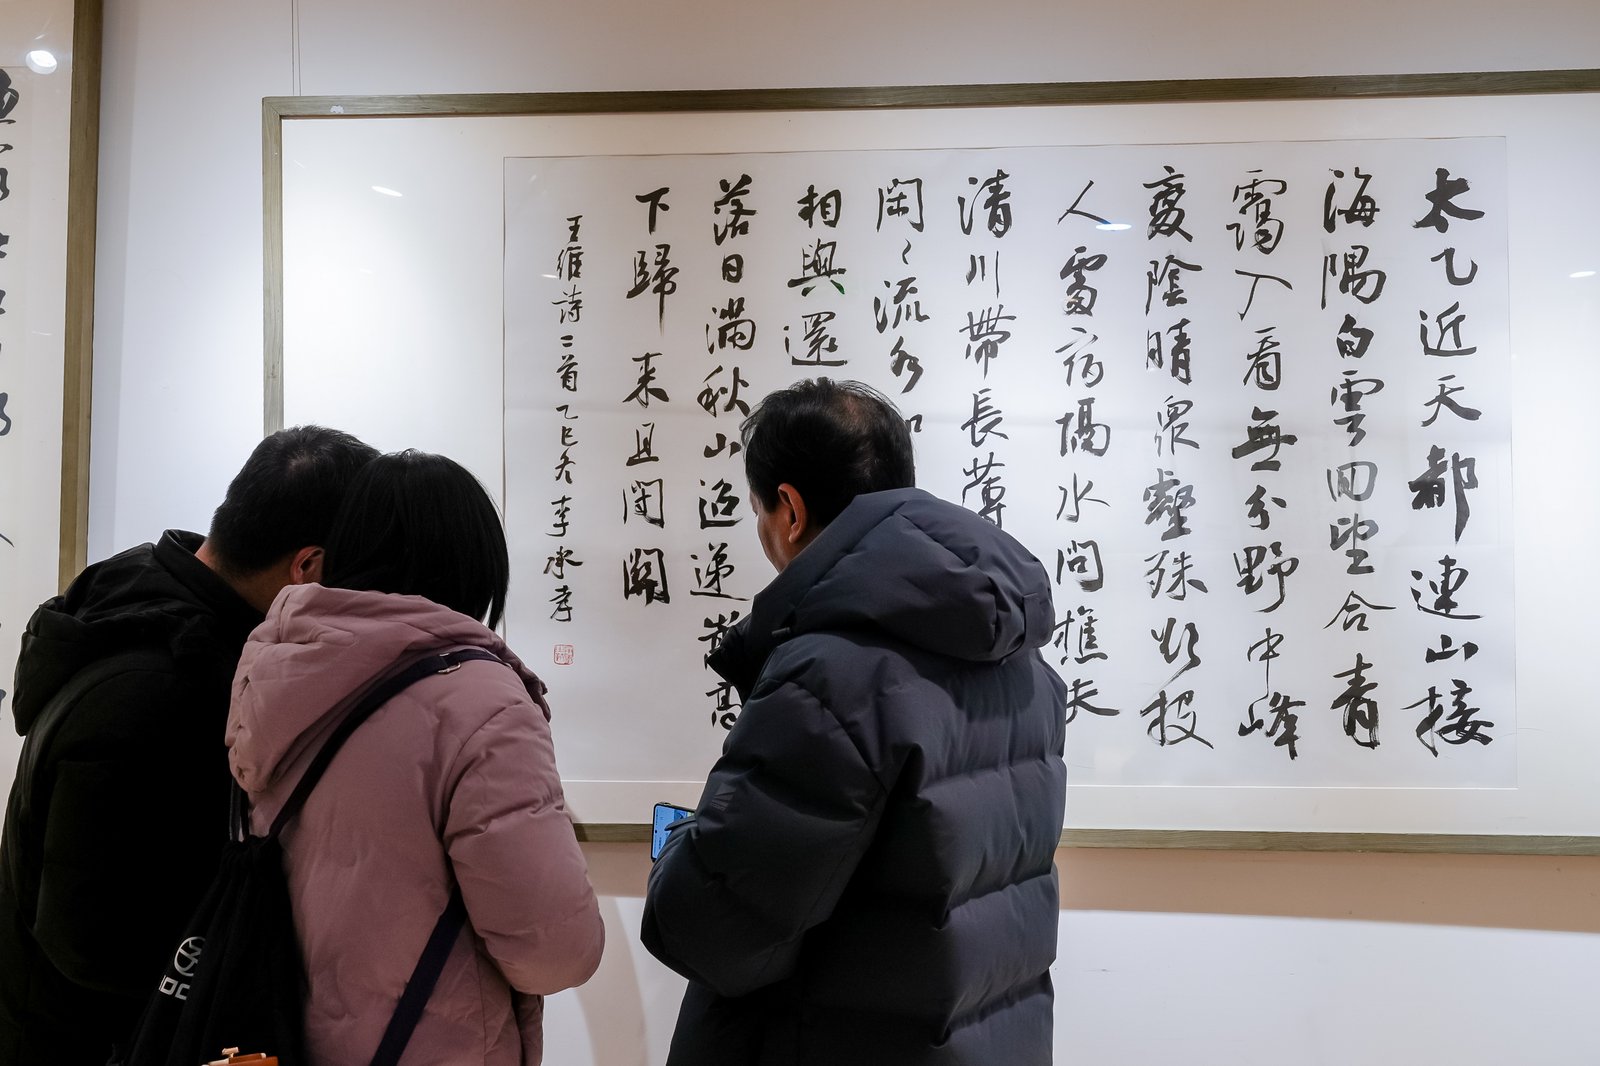 太乙近天都連山接
海隅白雲回望合青
靄入看無分野中峰
變陰晴眾壑殊欲投
人處宿隔水問樵夫
清川帶長薄
閑〻流水
相與還
落日滿秋山迢遞嵩高
下歸來且閉關
王維詩二首乙巳冬李承孝